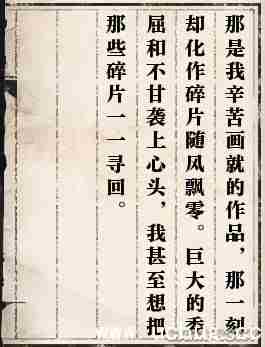 那是我辛苦画就的作品，那一刻
却化作碎片随风飘零。巨大的委
屈和不甘袭上心头，我甚至想把
那些碎片一一寻回。